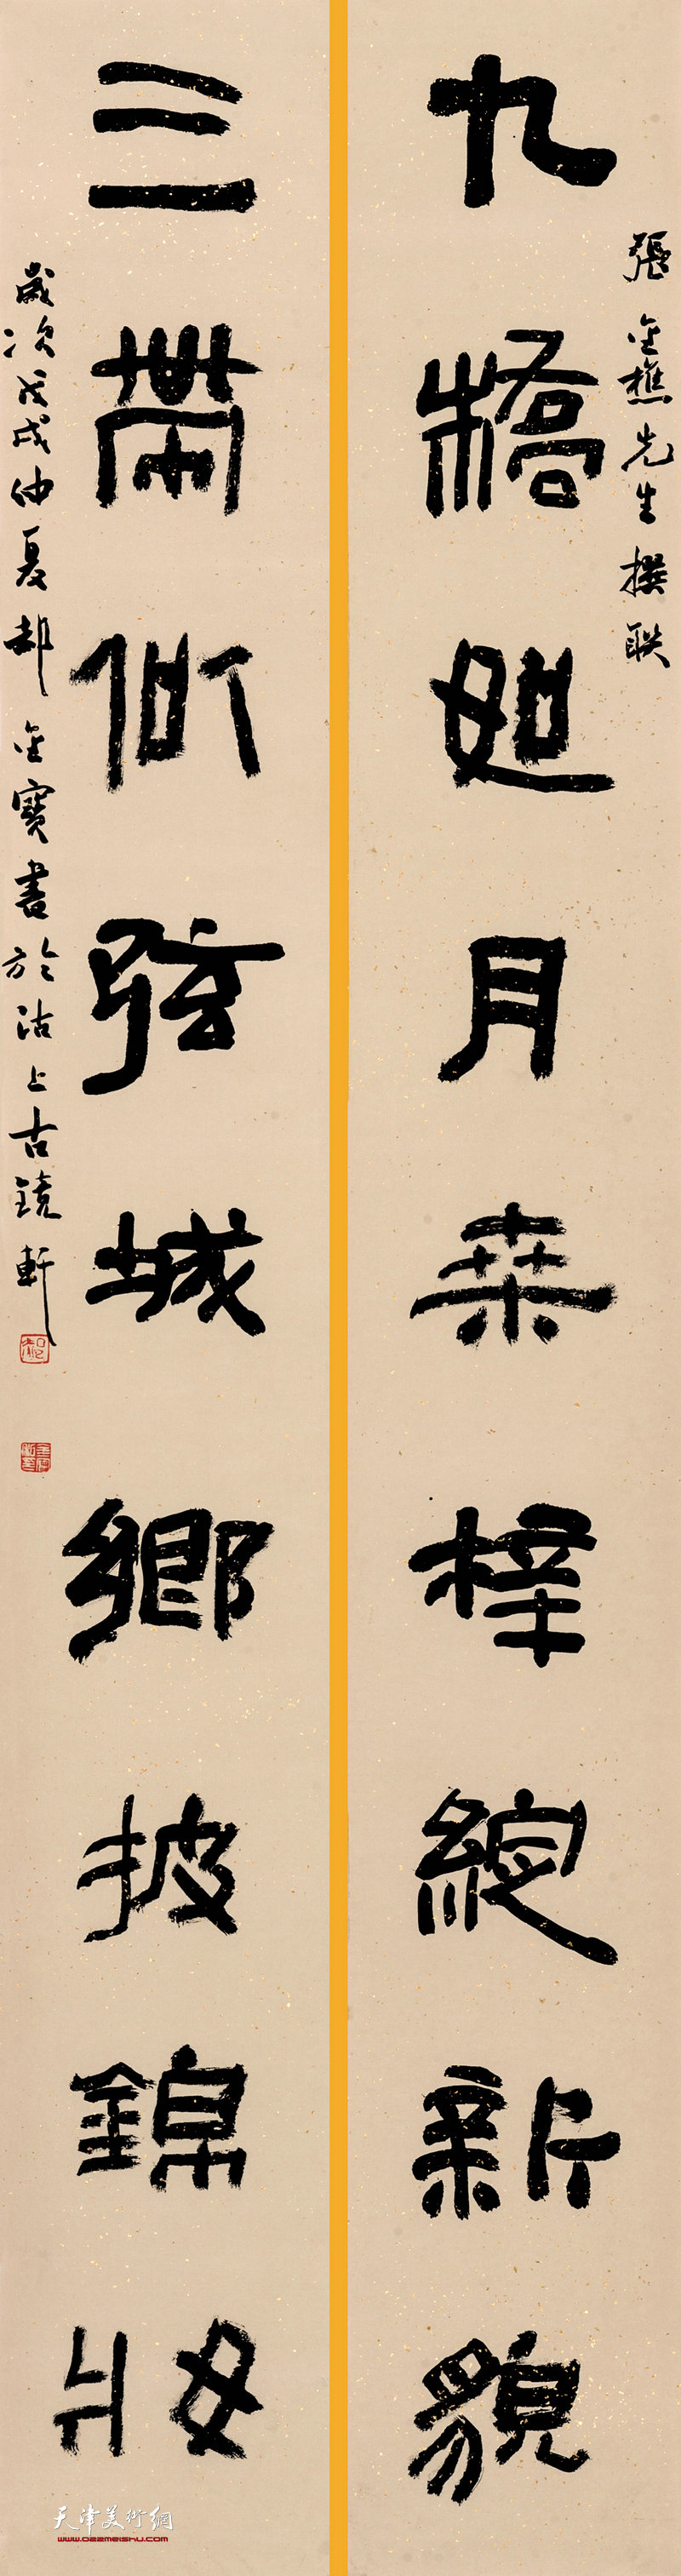 張金樵先生撰联
九橋如月桑梓綻新貌
三帶似弦城鄉披錦妝
歲次戊戌仲夏郝金寶書於沽上古鏡軒
天津美術網
www.022meishu.com